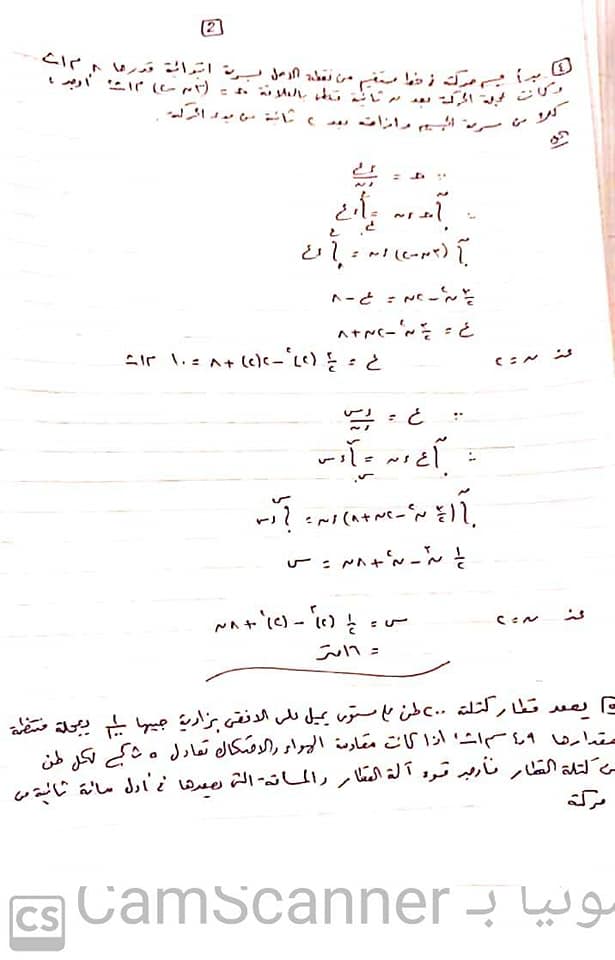 2
(٤) يبدأ جسم حركته في خط مستقيم من نقطة الأصل بسرعة ابتدائية قدرها ٨ م/ث
وكانت عجلة الحركة بعد ن ثانية تعطى بالعلاقة ح = (٣ن - ٢) م/ث٢ أوجد
كلا من سرعة الجسم وإزاحته بعد ٢ ثانية من بدء الحركة.
الحل
∵ ح = ءع/ءن
∴ ∫ ح ءن = ∫ ءع
∫ (٣ن - ٢) ءن = ∫ ءع
٣/٢ ن٢ - ٢ن = ع - ٨
ع = ٣/٢ ن٢ - ٢ن + ٨
عند ن = ٢ ع = ٣/٢ (٢)٢ - ٢(٢) + ٨ = ١٠ م/ث
∵ ع = ءس/ءن
∴ ∫ ع ءن = ∫ ءس
∫ (٣/٢ ن٢ - ٢ن + ٨) ءن = ∫ ءس
١/٢ ن٣ - ن٢ + ٨ن = س
عند ن = ٢ س = ١/٢ (٢)٣ - (٢)٢ + ٨ن
= ١٦ متر
يصعد قطار كتلة ٢٠٠ طن على مستوى يميل على الأفقى بزاوية جيبها بعجلة منتظمة
مقدارها ٤٩ سم/ث٢ اذا كانت مقاومة الهواء والاحتكاك تعادل ٥ ث كجم لكل طن
من كتلة القطار فأوجد قوة آلة القطار والمسافة التى يصعدها فى أول مائة ثانية من
حركة
CS CamScanner ضوئيا بـ